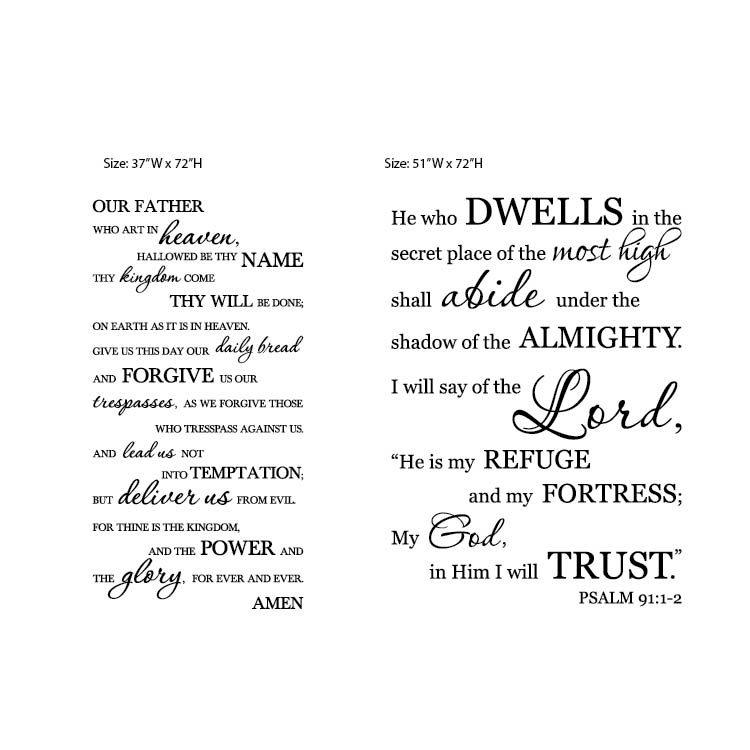 Size: 37"W x 72"H
OUR FATHER
WHO ART IN heaven,
HALLOWED BE THY NAME
THY kingdom COME
THY WILL BE DONE;
ON EARTH AS IT IS IN HEAVEN.
GIVE US THIS DAY OUR daily bread
AND FORGIVE US OUR
trespasses, AS WE FORGIVE THOSE
WHO TRESSPASS AGAINST US.
AND lead us NOT
INTO TEMPTATION;
BUT deliver us FROM EVIL.
FOR THINE IS THE KINGDOM,
AND THE POWER AND
THE glory, FOR EVER AND EVER.
AMEN
Size: 51"W x 72"H
He who DWELLS in the
secret place of the most high
shall abide under the
shadow of the ALMIGHTY.
I will say of the
Lord,
“He is my REFUGE
and my FORTRESS;
My God,
in Him I will TRUST.”
PSALM 91:1-2